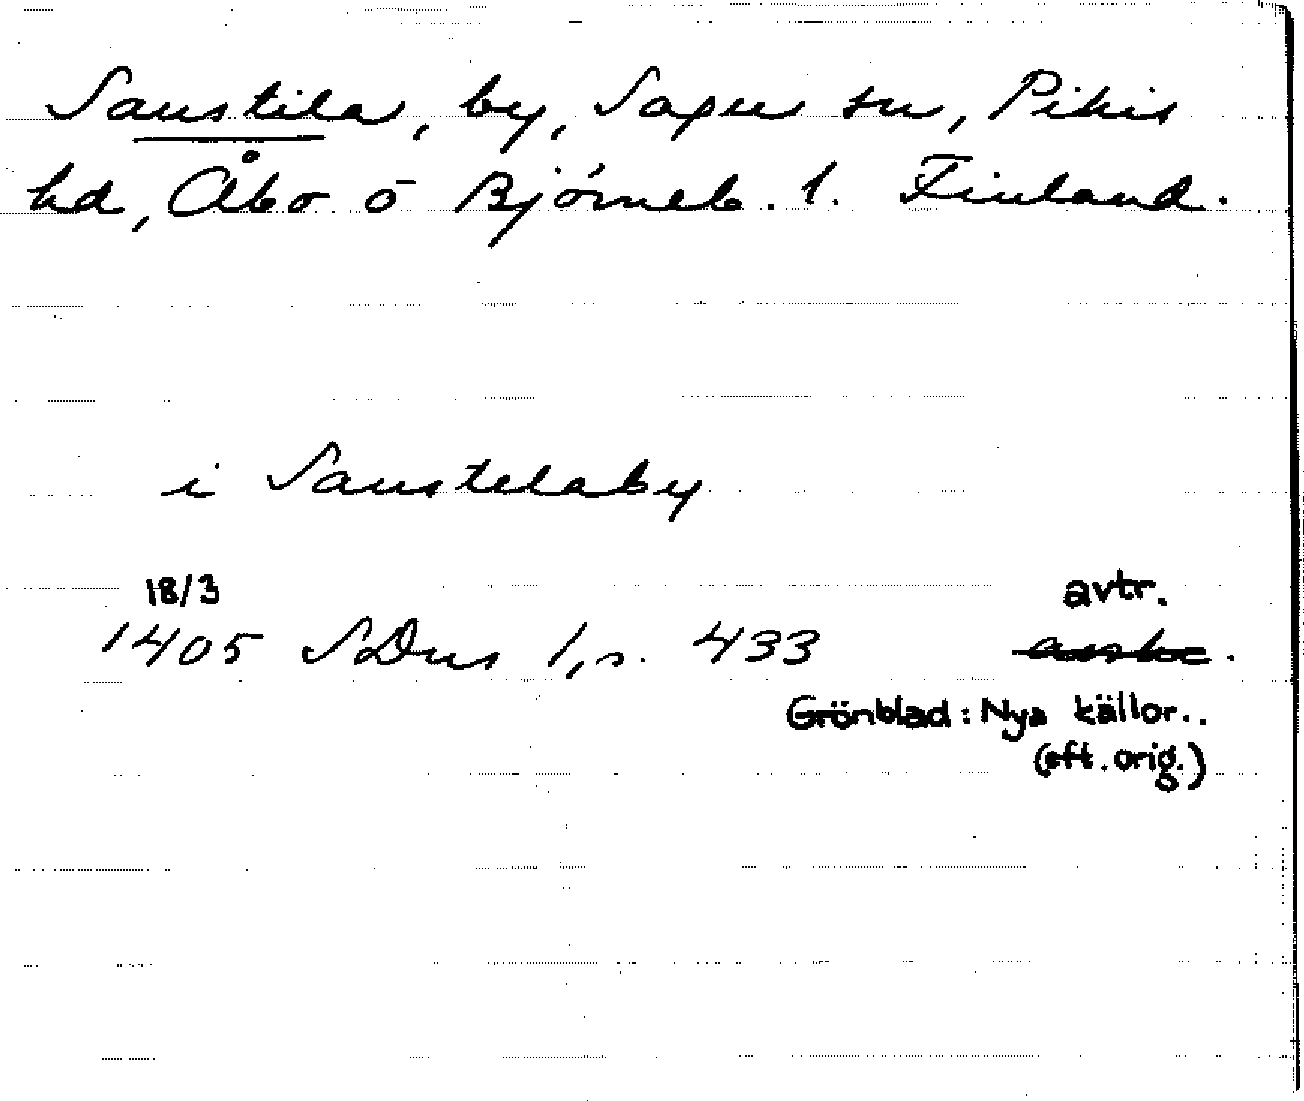 Saustila, by, Sagu sn, Pikis
hd, Åbo o Björneb. l. Finland.
i Saustelaby
18/3
avtr.
1405 SDns 1, s. 433
Grönblad: Nya källor..
(eft. orig.)